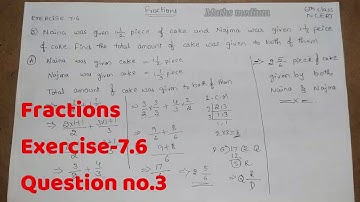 Fractions
Maths medium
6th class
NCERT
EXERCISE 7.6
③ Naina was given 1 1/2 piece of cake and Najma was given 1 1/3 piece
of cake. Find the total amount of cake was given to both of them
Ⓐ Naina was given cake = 1 1/2 piece
Najma was given cake = 1 1/3 piece
Total amount of cake was given to both of them
⇒ 3/2 × 3/3 + 4/3 × 2/2
⇒ 9/6 + 8/6
⇒ 9+8/6
⇒ 17/6
⇒ 2 5/6
⇒ 3/2 + 4/3
L.C.M
⇒ 2 5/6 piece of cake
given by both
Naina & Najma
Fractions
Exercise-7.6
Question no.3